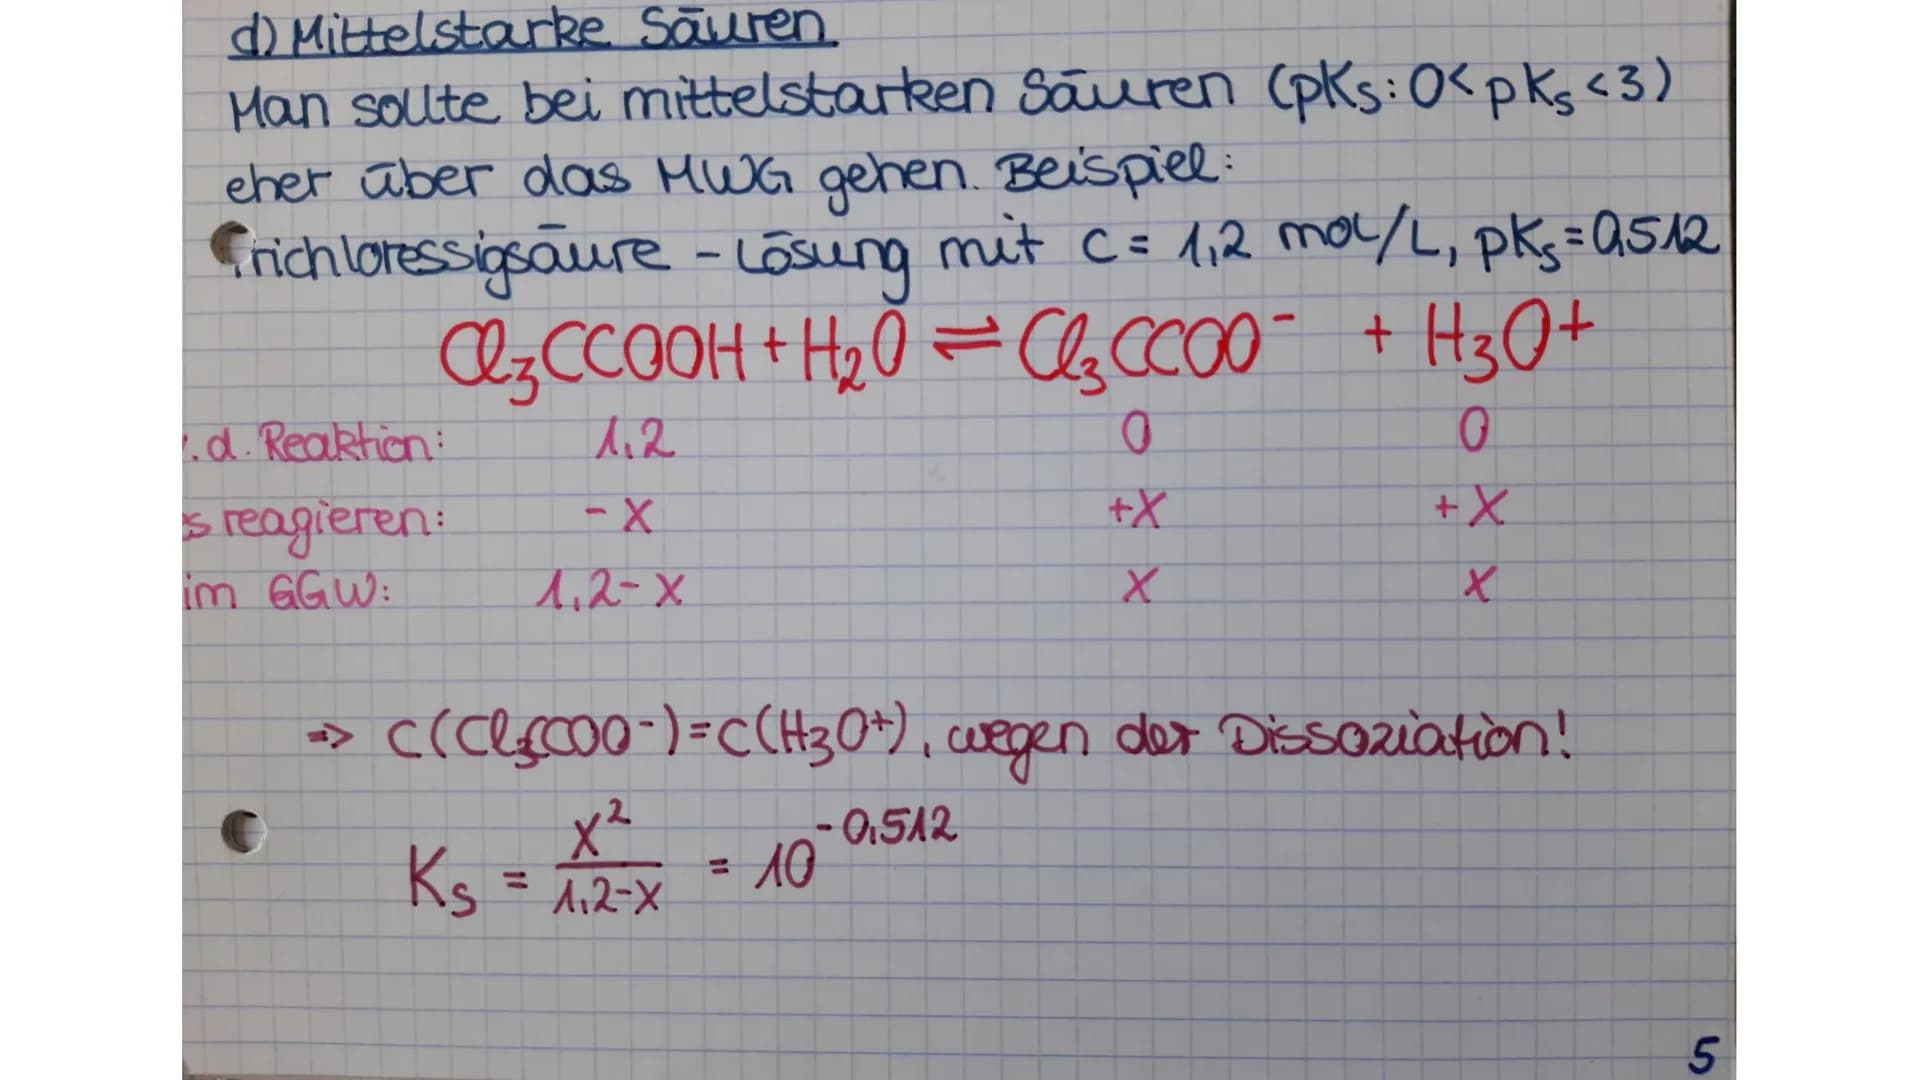 d) Mittelstarke Säuren
Man sollte bei mittelstarken Säuren (pKs: 0 < pKs < 3)
eher über das MWG gehen. Beispiel:
Trichloressigsäure - Lösung mit c = 1,2 mol/L, pKs = 0,512
Cl₃CCOOH + H₂O ⇌ Cl₃CCOO⁻ + H₃O+
v.d. Reaktion: 1,2 0 0
es reagieren: - x +x +x
im GGW: 1,2-x x x
=> c(Cl₃CCOO⁻) = c(H₃O+), wegen der Dissoziation!
Ks = x²/(1,2-x) = 10^-0,512
5